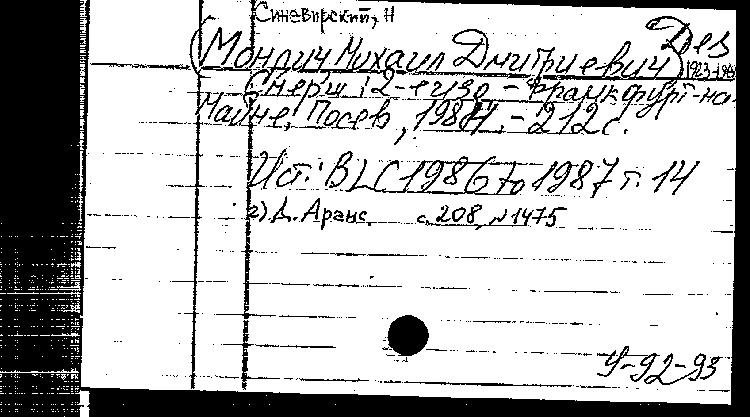 Синевирский, Н
(Мондич Михаил Дмитриевич)
1923-1968
Смерш: 2-е изд - Франкфурт-на-
Майне: Посев, 1984. - 212 с.
Ист.: BLC 1986 to 1987 т. 14
2) Д. Аранс. с. 208, №1475
У-92-93